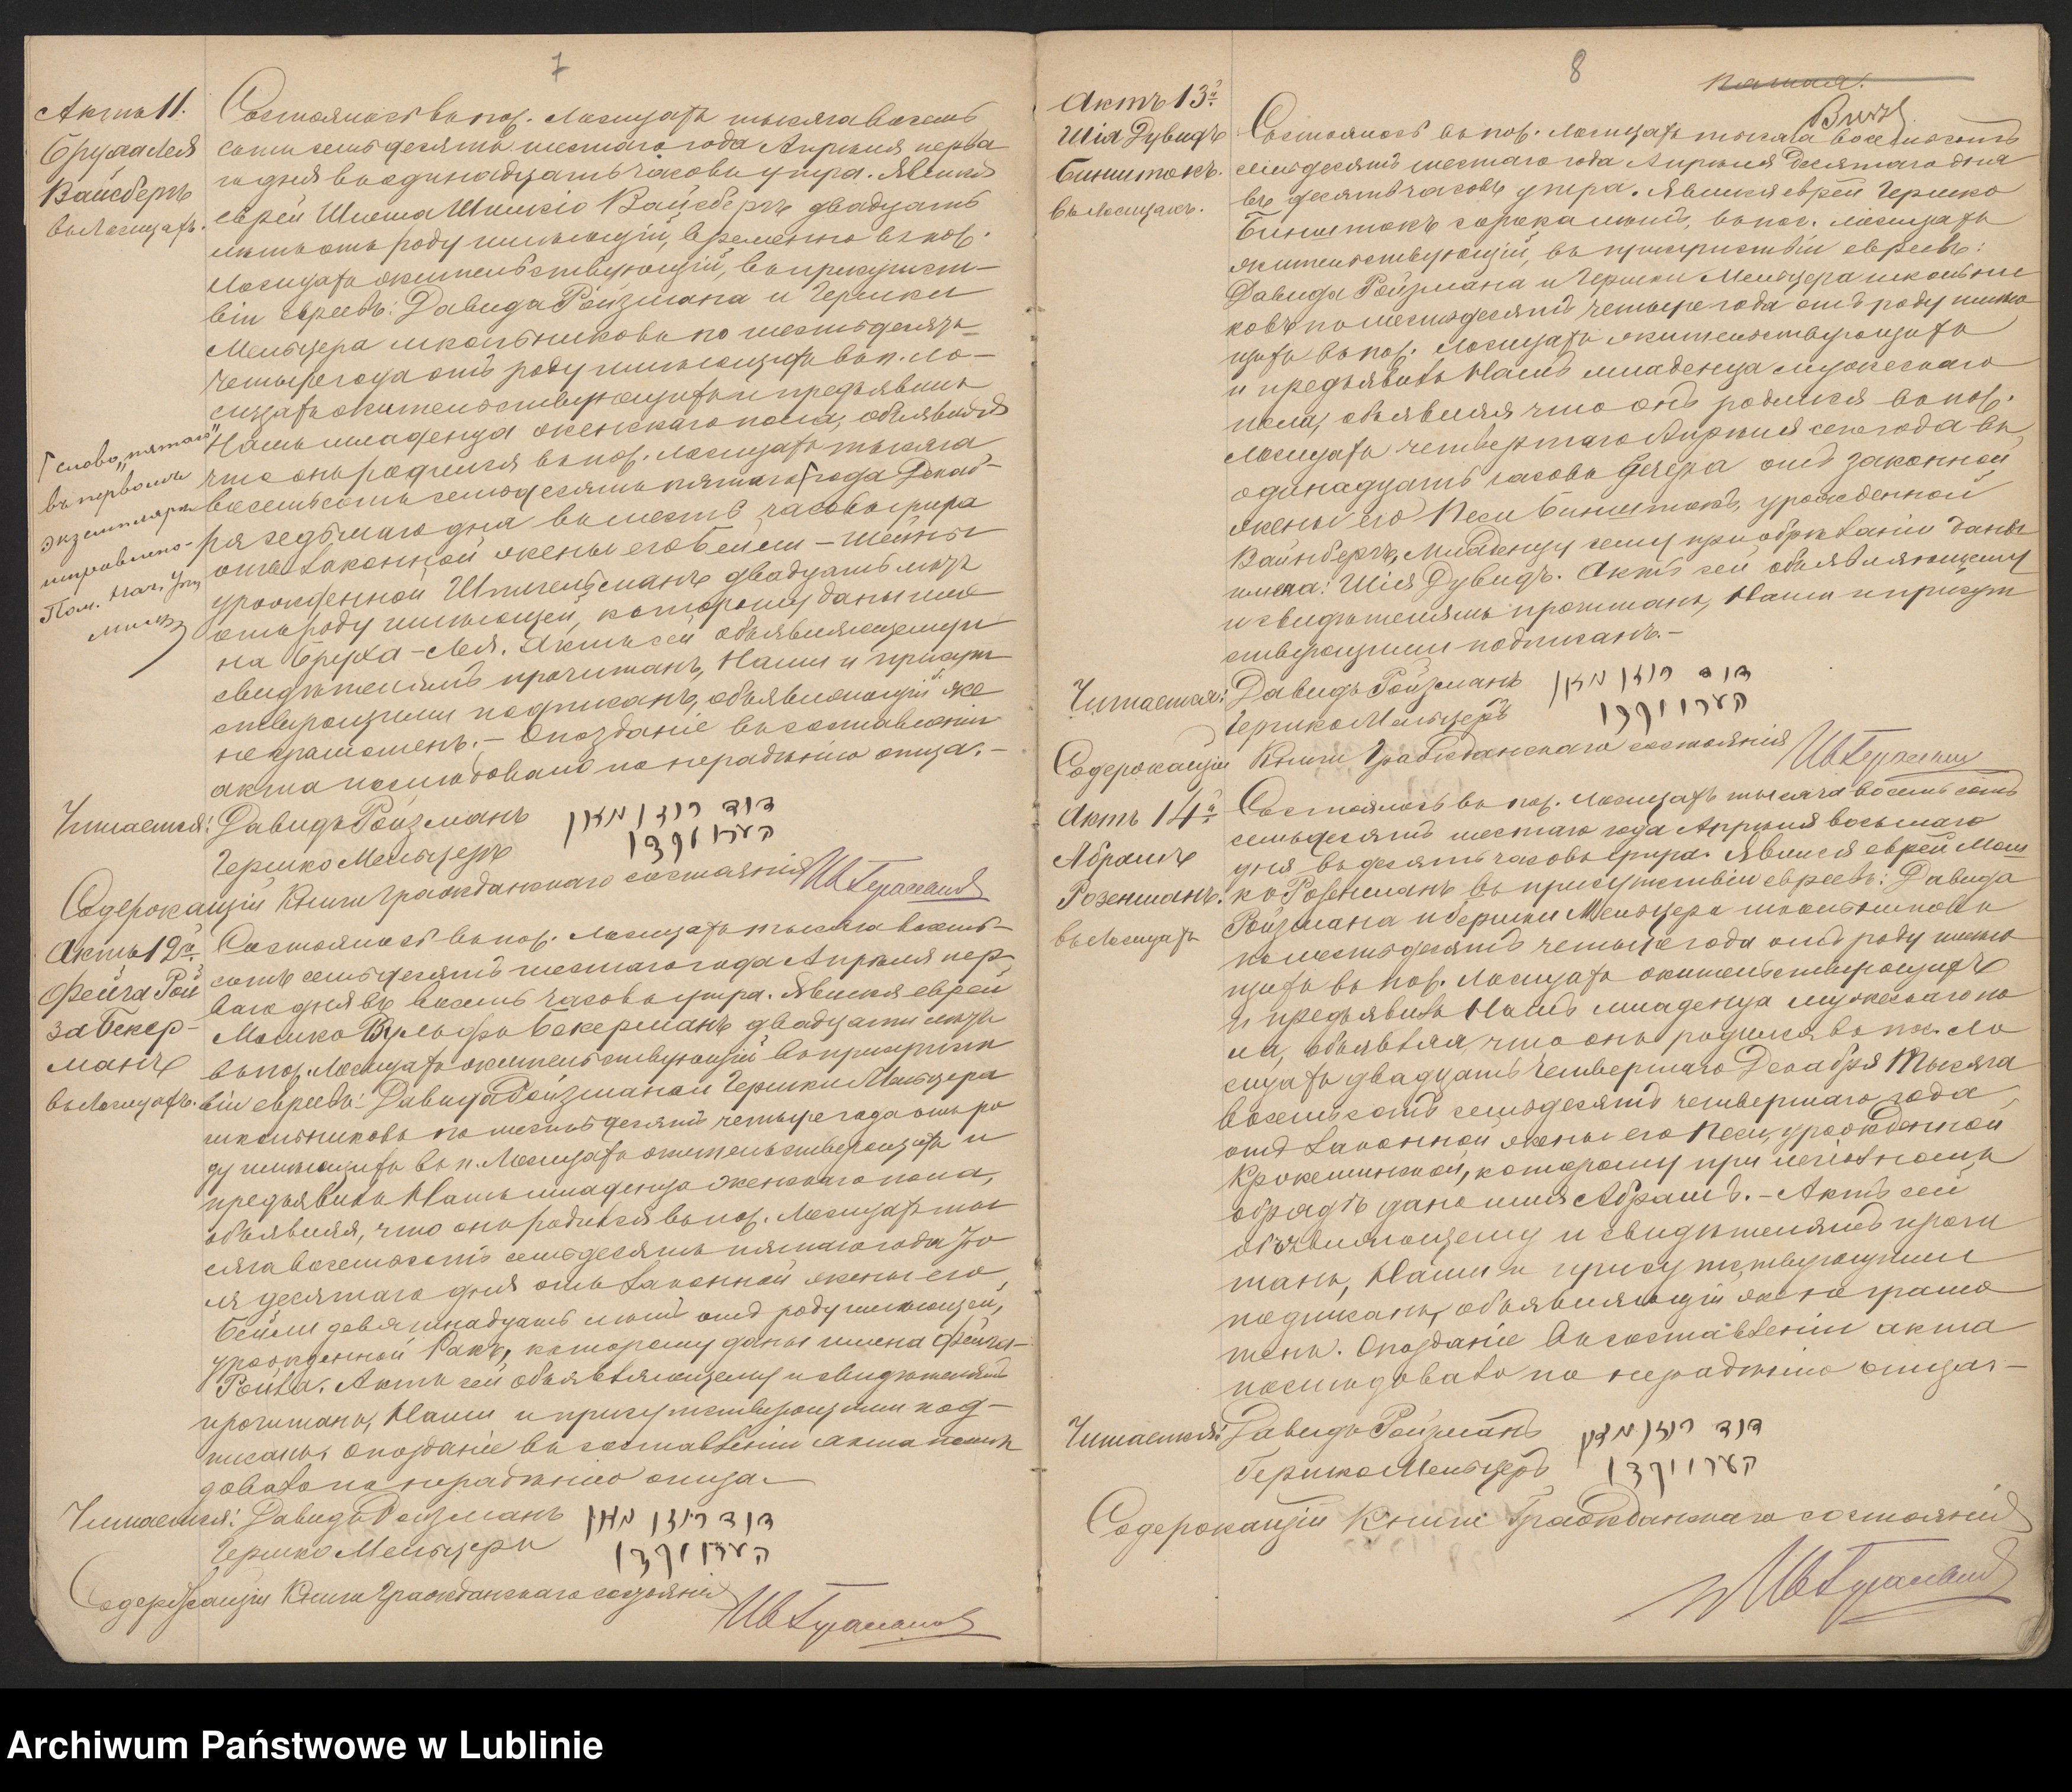 7
Актъ 11.
Бруха Лея
Вайсбергъ
въ Лосицахъ.
Состоялось въ пос. Лосицахъ тысяча восемь
сотъ семьдесятъ шестаго года Апрѣля перва
го дня въ одинадцать часовъ утра. Явился
еврей Шлема Вайсбергъ двадцать
лѣтъ отъ роду имѣющій, временно въ пос.
Лосицахъ жительствующій, въ присутст-
віи евреевъ: Давида Ройзмана и Гершки
Мельцера школьниковъ по шестьдесятъ
четыре года отъ роду имѣющихъ въ п. Ло-
сицахъ жительствующихъ и предъявилъ
Намъ младенца женскаго пола, объявляя
что онъ родился въ пос. Лосицахъ тысяча
восемьсотъ семьдесятъ пятаго года Декаб-
ря седьмаго дня въ шесть часовъ утра
отъ законной жены его Бейли-Шейны
урожденной двадцать лѣтъ
отъ роду имѣющей, которому даны име
на Бруха-Лея. Актъ сей объявляющему и
свидѣтелямъ прочитанъ, Нами и присут
ствующими подписанъ, объявляющій же
неграмотенъ.- Опозданіе въ составленіи
акта послѣдовало по нерадѣнію отца.-
слово "пятаго"
въ первомъ
экземплярѣ
исправлено.
Читается: Давидъ Ройзманъ דוד רויזמאן
Гершко Мельцеръ
Содержащій Книги гражданскаго состоянія
Актъ 12й
Фейга Рой
за Бекер-
манъ
въ Лосицахъ.
Состоялось въ пос. Лосицахъ тысяча восемь-
сотъ семьдесятъ шестаго года Апрѣля пер-
ваго дня въ восемь часовъ утра. Явился еврей
Мошко Вульфъ Бекерманъ двадцати лѣтъ
въ пос. Лосицахъ жительствующій въ присутст
віи евреевъ: Давида Ройзмана и Гершки Мельцера
школьниковъ по шестьдесятъ четыре года отъ ро
ду имѣющихъ въ п. Лосицахъ жительствующихъ и
предъявилъ Намъ младенца женскаго пола,
объявляя, что онъ родился въ пос. Лосицахъ ты
сяча восемьсотъ семьдесятъ пятаго года Ію
ля десятаго дня отъ законной жены его,
Бейли девятнадцать лѣтъ отъ роду имѣющей,
урожденной Ракъ, которому даны имена Фейга-
Ройза. Актъ сей объявляющему и свидѣтелямъ
прочитанъ, Нами и присутствующими под-
писанъ, опозданіе въ составленіи акта послѣ
довало по нерадѣнію отца.-
Читается: Давидъ Ройзманъ דוד רויזמאן
Гершко Мельцеръ
Содержащій Книги гражданскаго состоянія
8
Актъ 13й
Шія Дувидъ
Бинштокъ.
въ Лосицахъ.
Состоялось въ пос. Лосицахъ тысяча восемьсотъ
семьдесятъ шестаго года Апрѣля десятаго дня
въ десять часовъ утра. Явился еврей Гершко
Бинштокъ сорока лѣтъ, въ пос. Лосицахъ
жительствующій, въ присутствіи евреевъ:
Давида Ройзмана и Гершки Мельцера школьни
ковъ по шестьдесятъ четыре года отъ роду имѣю
щихъ въ пос. Лосицахъ жительствующихъ
и предъявилъ Намъ младенца мужескаго
пола, объявляя что онъ родился въ пос.
Лосицахъ четвертаго Апрѣля сего года въ
одинадцать часовъ вечера отъ законной
жены его Песи Бинштокъ, урожденной
Вайнбергъ, Младенцу сему при обрѣзаніи даны
имена: Шія Дувидъ. Актъ сей объявляющему
и свидѣтелямъ прочитанъ, Нами и присут
ствующими подписанъ.-
Читается: Давидъ Ройзманъ דוד רויזמאן
Гершко Мельцеръ
Содержащій Книги Гражданскаго состоянія
Актъ 14й
Абрамъ
Розенманъ.
въ Лосицахъ
Состоялось въ пос. Лосицахъ тысяча восемьсотъ
семьдесятъ шестаго года Апрѣля восьмаго
дня въ десять часовъ утра. Явился еврей Мош
ко Розенманъ въ присутствіи евреевъ: Давида
Ройзмана и Гершки Мельцера школьниковъ
по шестьдесятъ четыре года отъ роду имѣю
щихъ въ пос. Лосицахъ жительствующихъ
и предъявилъ Намъ младенца мужескаго по
ла, объявляя, что онъ родился въ пос. Ло
сицахъ двадцать четвертаго Декабря Тысяча
восемьсотъ семьдесятъ четвертаго года,
отъ законной жены его Песи, урожденной
которому при
обрядѣ дано имя Абрамъ.- Актъ сей
объявляющему и свидѣтелямъ прочи
танъ, Нами и присутствующими
подписанъ, объявляющій же не грамо
тенъ. Опозданіе въ составленіи акта
послѣдовало по нерадѣнію отца.-
Читается: Давидъ Ройзманъ דוד רויזמאן
Гершко Мельцеръ
Содержащій Книги Гражданскаго состоянія
Archiwum Państwowe w Lublinie